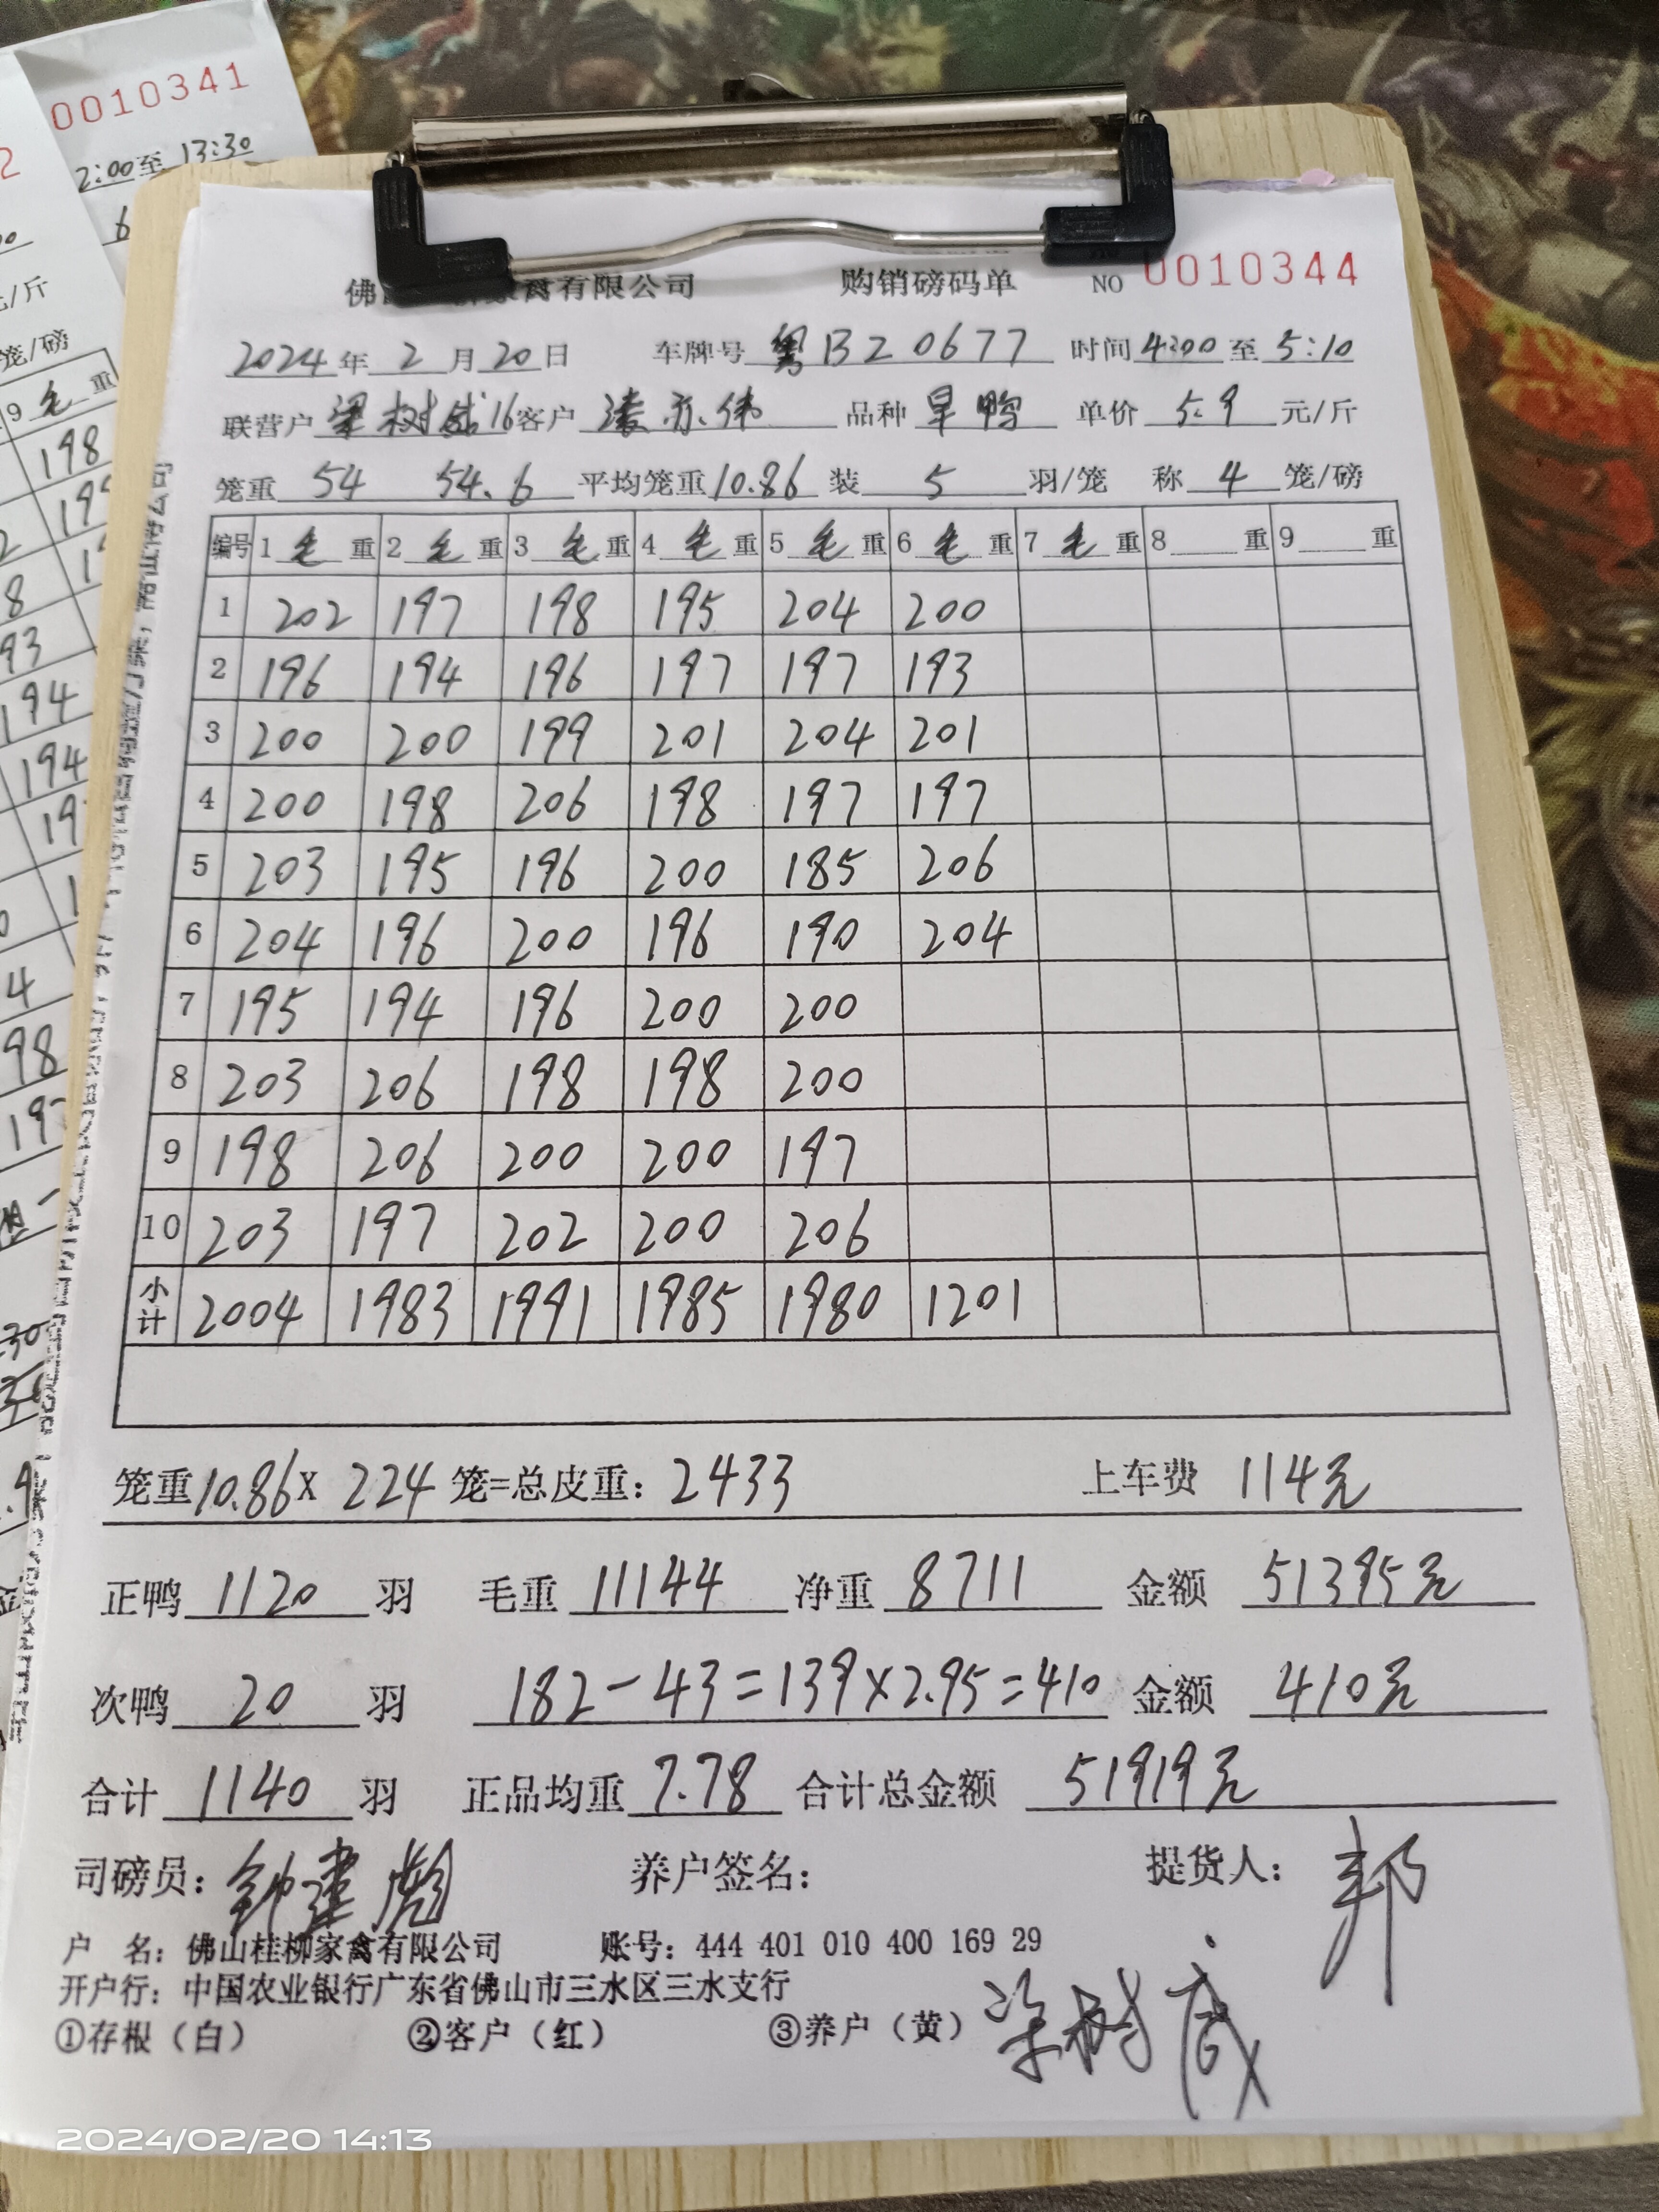 0010341
2:00至 13:30
家禽有限公司 购销磅码单 NO 0010344
2024年 2 月 20 日 车牌号 粤BZ0677 时间 4:00 至 5:10
联营户 梁树威16 客户 凌亦伟 品种 旱鸭 单价 5.9 元/斤
笼重 54 54.6 平均笼重 10.86 装 5 羽/笼 称 4 笼/磅
编号 1 毛 重 2 毛 重 3 毛 重 4 毛 重 5 毛 重 6 毛 重 7 毛 重 8 重 9 重
1 202 197 198 195 204 200
2 196 194 196 197 197 193
3 200 200 199 201 204 201
4 200 198 206 198 197 197
5 203 195 196 200 185 206
6 204 196 200 196 190 204
7 195 194 196 200 200
8 203 206 198 198 200
9 198 206 200 200 197
10 203 197 202 200 206
小计 2004 1983 1991 1985 1980 1201
笼重 10.86 x 224 笼=总皮重: 2433 上车费 114元
正鸭 1120 羽 毛重 11144 净重 8711 金额 51395元
次鸭 20 羽 182-43=139×2.95=410 金额 410元
合计 1140 羽 正品均重 7.78 合计总金额 51919元
司磅员: 钟建彪 养户签名: 提货人: 邦
户 名: 佛山桂柳家禽有限公司 账号: 444 401 010 400 169 29
开户行: 中国农业银行广东省佛山市三水区三水支行
①存根(白) ②客户(红) ③养户(黄) 梁树威
2024/02/20 14:13